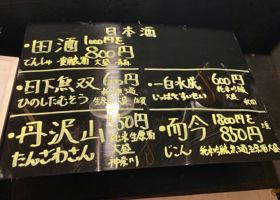 日本酒
・田酒 1000円を
800円
でんしゅ 大盛 青森
・日下無双 600円
ひのしたむそう 生原酒 大盛 佐賀
・一白水成 600円
純米吟醸
大盛 秋田
・丹沢山 850円
純米生原酒
たんざわさん 大盛
神奈川
・而今 1800円を
850円
じこん 純米吟醸